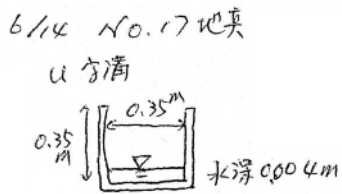 6/14 No.17地点
U字溝
0.35m
0.35
m
水深0.004m